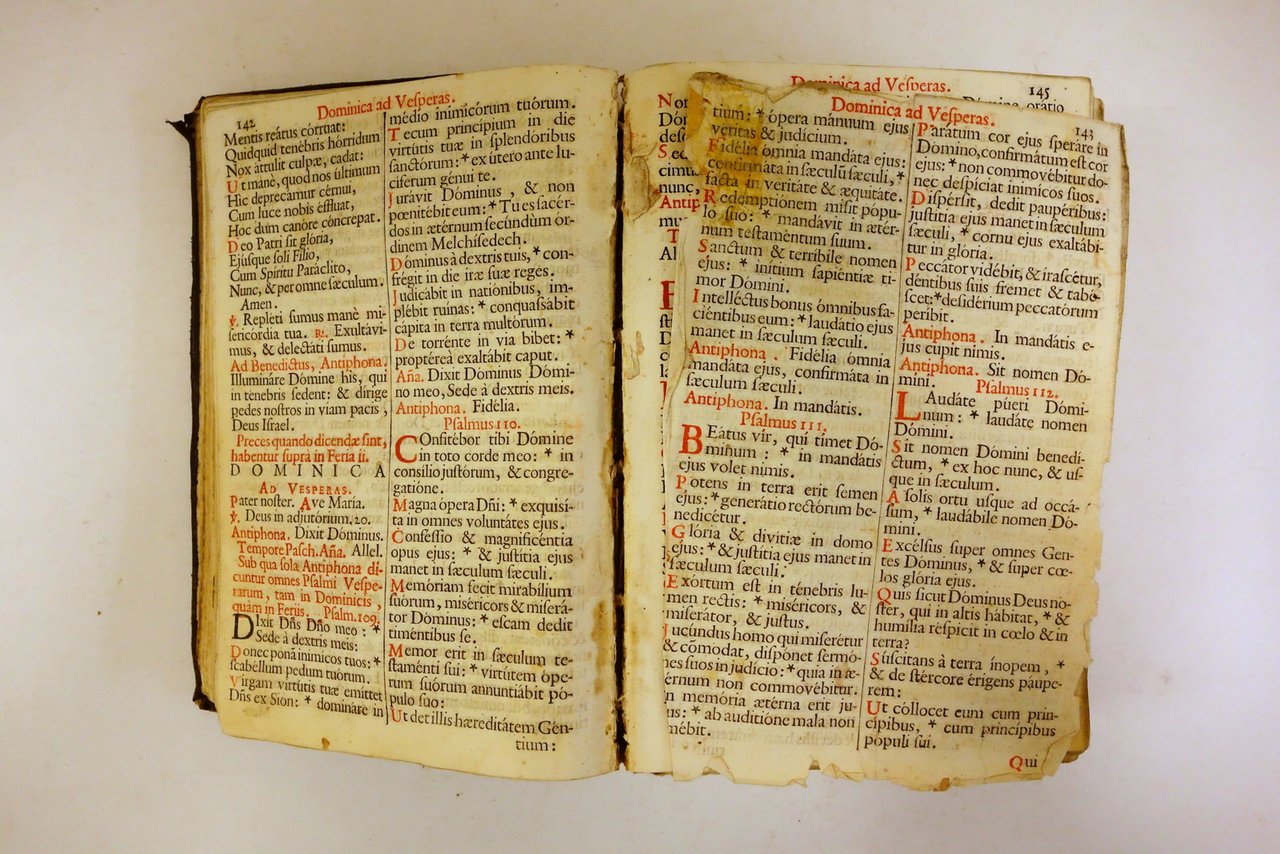 142
Dominica ad Vesperas.
Mentis reátus córruat:
Quidquid tenébris hórridum
Nox áttulit culpæ, cadat:
Ut mane, quod nos últimum
Hîc deprecámur cérnui,
Cum luce nobis éffluat,
Hoc dum canóre cóncrepat.
Deo Patri sit glória,
Ejúsque soli Fílio,
Cum Spíritu Paráclito,
Nunc, & per omne sæculum.
Amen.
℣. Repléti sumus manè mi-
sericórdia tua. ℟. Exultávi-
mus, & delectáti sumus.
Ad Benedictus, Antiphona.
Illumináre Dómine his, qui
in ténebris sedent: & dírige
pedes nostros in viam pacis,
Deus Israel.
Preces quando dicendæ sint,
habentur suprà in Feria ii.
DOMINICA
AD VESPERAS.
Pater noster. Ave María.
℣. Deus in adjutórium. 20.
Antiphona. Dixit Dóminus.
Tempore Pasch. Aña. Allel.
Sub qua sola Antiphona di-
cuntur omnes Psalmi Vespe-
rarum, tam in Dominicis,
quàm in Feriis. Psalm. 109.
DIxit Dñs Dño meo: *
Sede à dextris meis:
Donec ponã inimícos tuos: *
scabéllum pedum tuórum.
Virgam virtútis tuæ emíttet
Dñs ex Sion: * domináre in
médio inimicórum tuórum.
Tecum princípium in die
virtútis tuæ in splendóribus
sanctórum: * ex útero ante lu-
cíferum génui te.
Jurávit Dóminus, & non
pœnitébit eum: * Tu es sacér-
dos in ætérnum secúndùm ór-
dinem Melchísedech.
Dóminus à dextris tuis, * con-
frégit in die iræ suæ reges.
Judicábit in natiónibus, im-
plébit ruínas: * conquassábit
cápita in terra multórum.
De torrénte in via bibet: *
proptéreà exaltábit caput.
Aña. Dixit Dóminus Dómi-
no meo, Sede à dextris meis.
Antiphona. Fidélia.
Psalmus 110.
COnfitébor tibi Dómine
in toto corde meo: * in
consílio justórum, & congre-
gatióne.
Magna ópera Dñi: * exquisí-
ta in omnes voluntátes ejus.
Conféssio & magnificéntia
opus ejus: * & justítia ejus
manet in sæculum sæculi.
Memóriam fecit mirabílium
suórum, miséricors & miserá-
tor Dóminus: * escam dedit
timéntibus se.
Memor erit in sæculum te-
staménti sui: * virtútem óper-
rum suórum annuntiábit pó-
pulo suo:
Ut det illis hæreditátem Gén-
tium:
Dominica ad Vesperas.
145
Dominica ad Vesperas.
143
tium: * ópera mánuum ejus
véritas & judícium.
Fidélia ómnia mandáta ejus:
confirmáta in sæculũ sæculi, *
facta in veritáte & æquitáte.
Redemptiónem misit pópu-
lo suo: * mandávit in ætér-
num testaméntum suum.
Sanctum & terríbile nomen
ejus: * inítium sapiéntiæ ti-
mor Dómini.
Intelléctus bonus ómnibus fa-
ciéntibus eum: * laudátio ejus
manet in sæculum sæculi.
Antiphona. Fidélia ómnia
mandáta ejus, confirmáta in
sæculum sæculi.
Antiphona. In mandátis.
Psalmus 111.
BEátus vir, qui timet Dó-
minum: * in mandátis
ejus volet nimis.
Potens in terra erit semen
ejus: * generátio rectórum be-
nedicétur.
Glória & divítiæ in domo
ejus: * & justítia ejus manet in
sæculum sæculi.
Exórtum est in ténebris lu-
men rectis: * miséricors, &
miserátor, & justus.
Jucúndus homo qui miserétur
& cõmodat, dispónet sermó-
nes suos in judício: * quia in æ-
térnum non commovébitur.
n memória ætérna erit ju-
us: * ab auditióne mala non
mébit.
Parátum cor ejus speráre in
Dómino, confirmátum est cor
ejus: * non commovébitur do-
nec despíciat inimícos suos.
Dispérsit, dedit paupéribus:
justítia ejus manet in sæculum
sæculi, * cornu ejus exaltábi-
tur in glória.
Peccátor vidébit, & irascétur,
déntibus suis fremet & tabé-
scet: * desidérium peccatórum
períbit.
Antiphona. In mandátis e-
jus cupit nimis.
Antiphona. Sit nomen Dó-
mini. Psalmus 112.
LAudáte púeri Dómi-
num: * laudáte nomen
Dómini.
Sit nomen Dómini benedí-
ctum, * ex hoc nunc, & us-
que in sæculum.
A solis ortu usque ad occá-
sum, * laudábile nomen Dó-
mini.
Excélsus super omnes Gen-
tes Dóminus, * & super cœ-
los glória ejus.
Quis sicut Dóminus Deus no-
ster, qui in altis hábitat, * &
humília réspicit in cœlo & in
terra?
Súscitans à terra ínopem, *
& de stércore érigens páupe-
rem:
Ut cóllocet eum cum prin-
cípibus, * cum princípibus
pópuli sui.
Qui